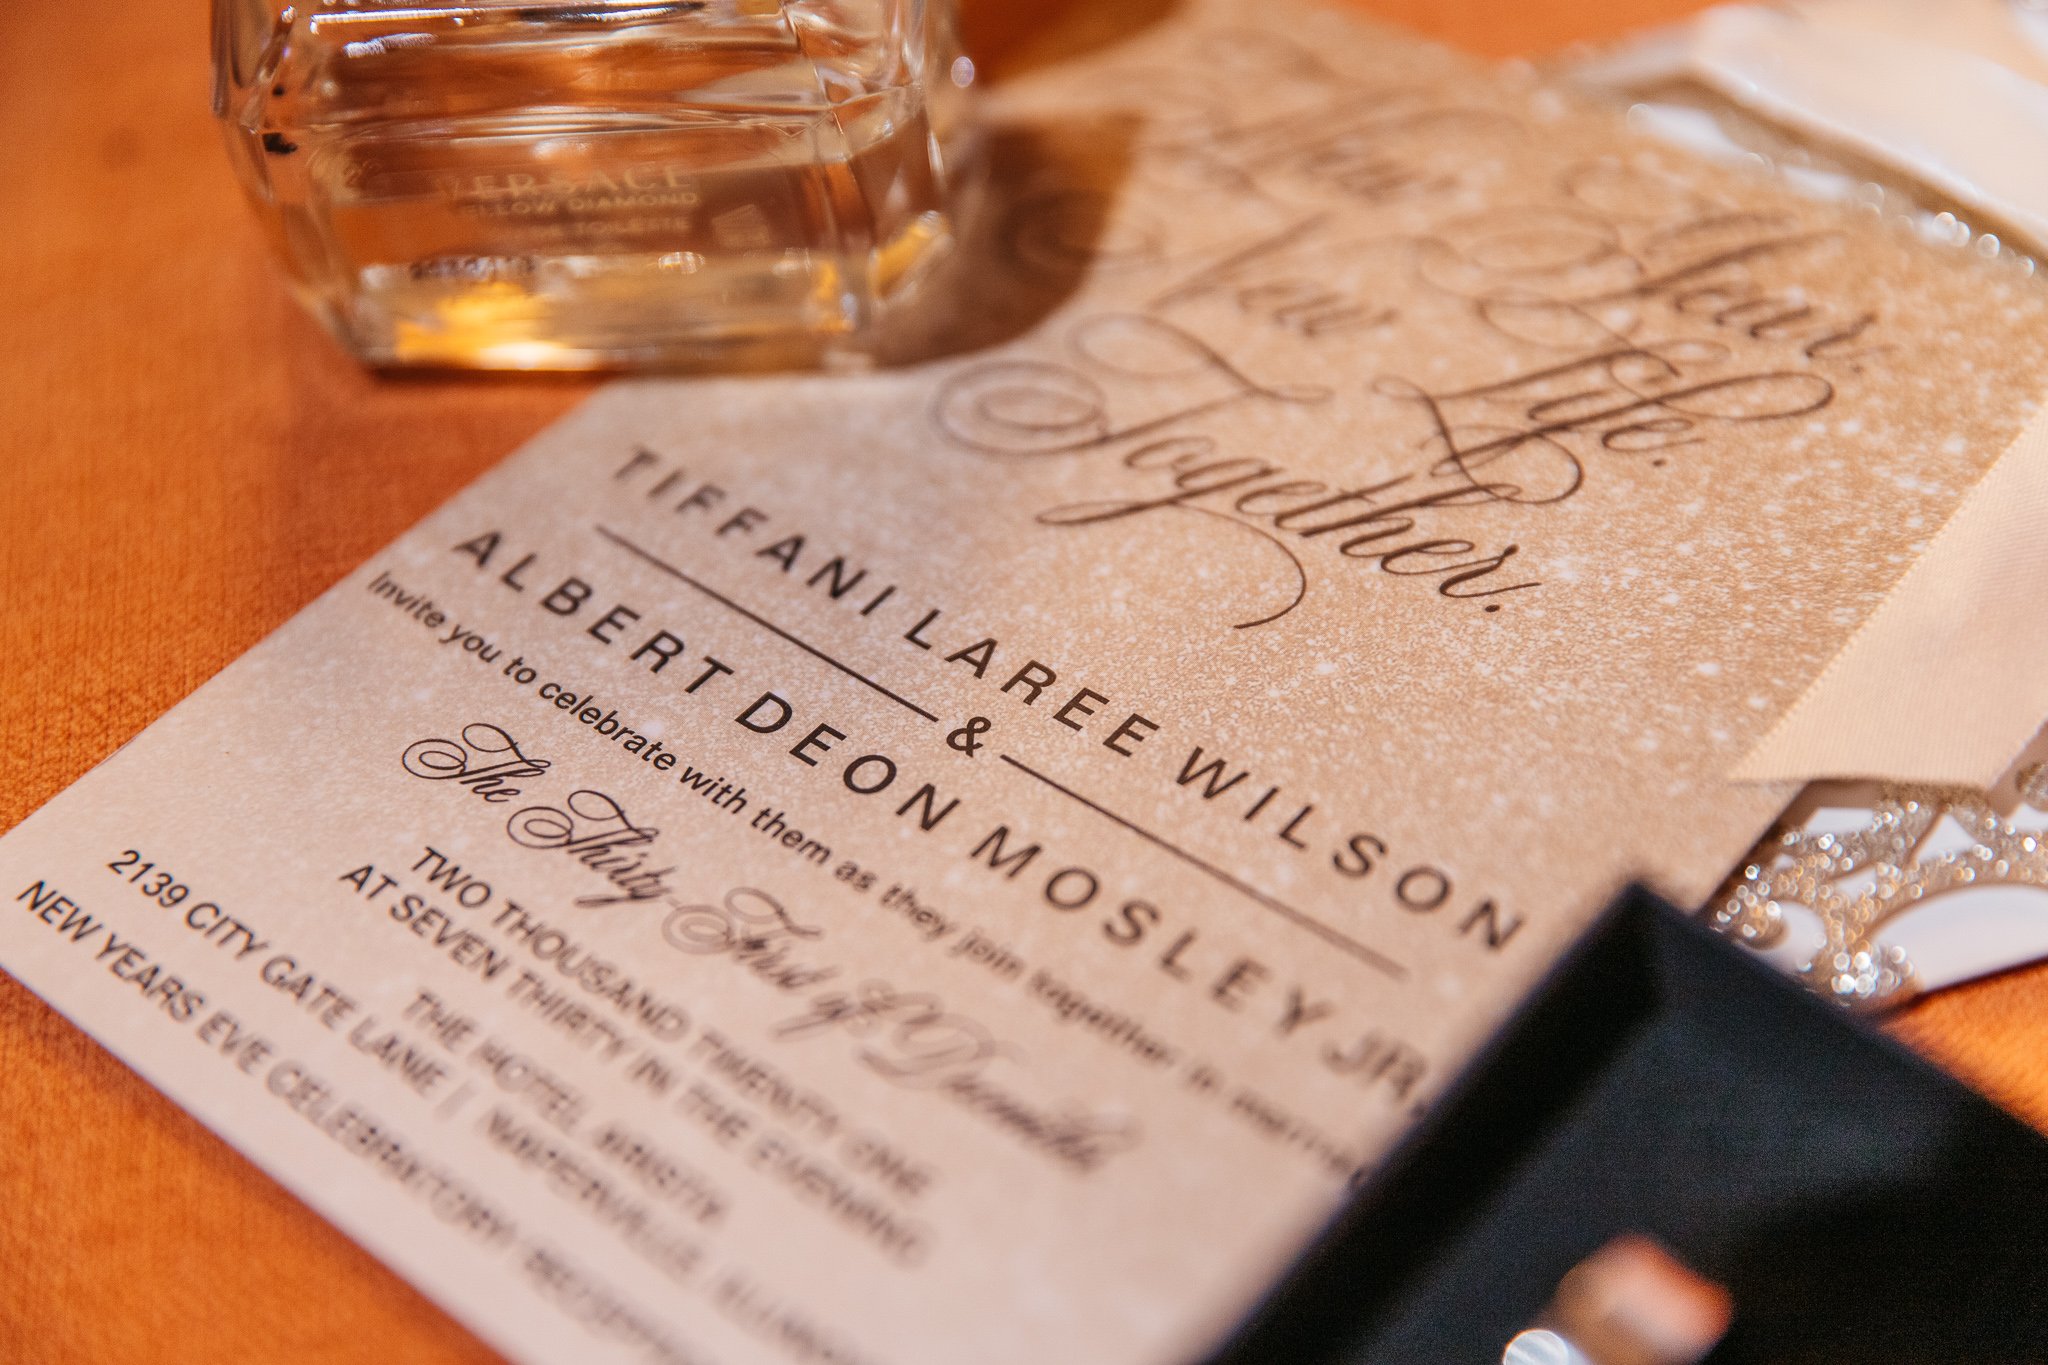 VERSACE
YELLOW DIAMOND
DE TOILETTE
New Year.
New Life.
Together.
TIFFANI LAREE WILSON
&
ALBERT DEON MOSLEY JR.
Invite you to celebrate with them as they join together in
The Thirty-First of December
TWO THOUSAND TWENTY ONE
AT SEVEN THIRTY IN THE EVENING
THE HOTEL
2139 CITY GATE LANE |
NEW YEARS EVE CELEBRATORY